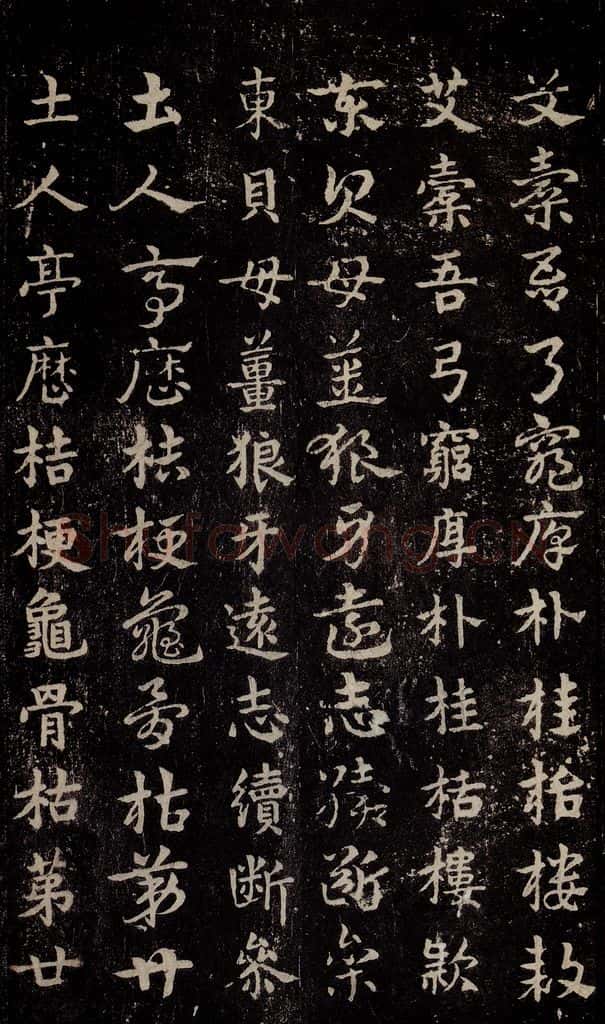 艾橐吾弓窮厚朴桂栝樓款
艾橐吾弓窮厚朴桂栝樓款
東貝母薑狼牙遠志續斷參
東貝母薑狼牙遠志續斷參
土人亭歷桔梗龜骨枯第廿
土人亭歷桔梗龜骨枯第廿
Shufawang.CN